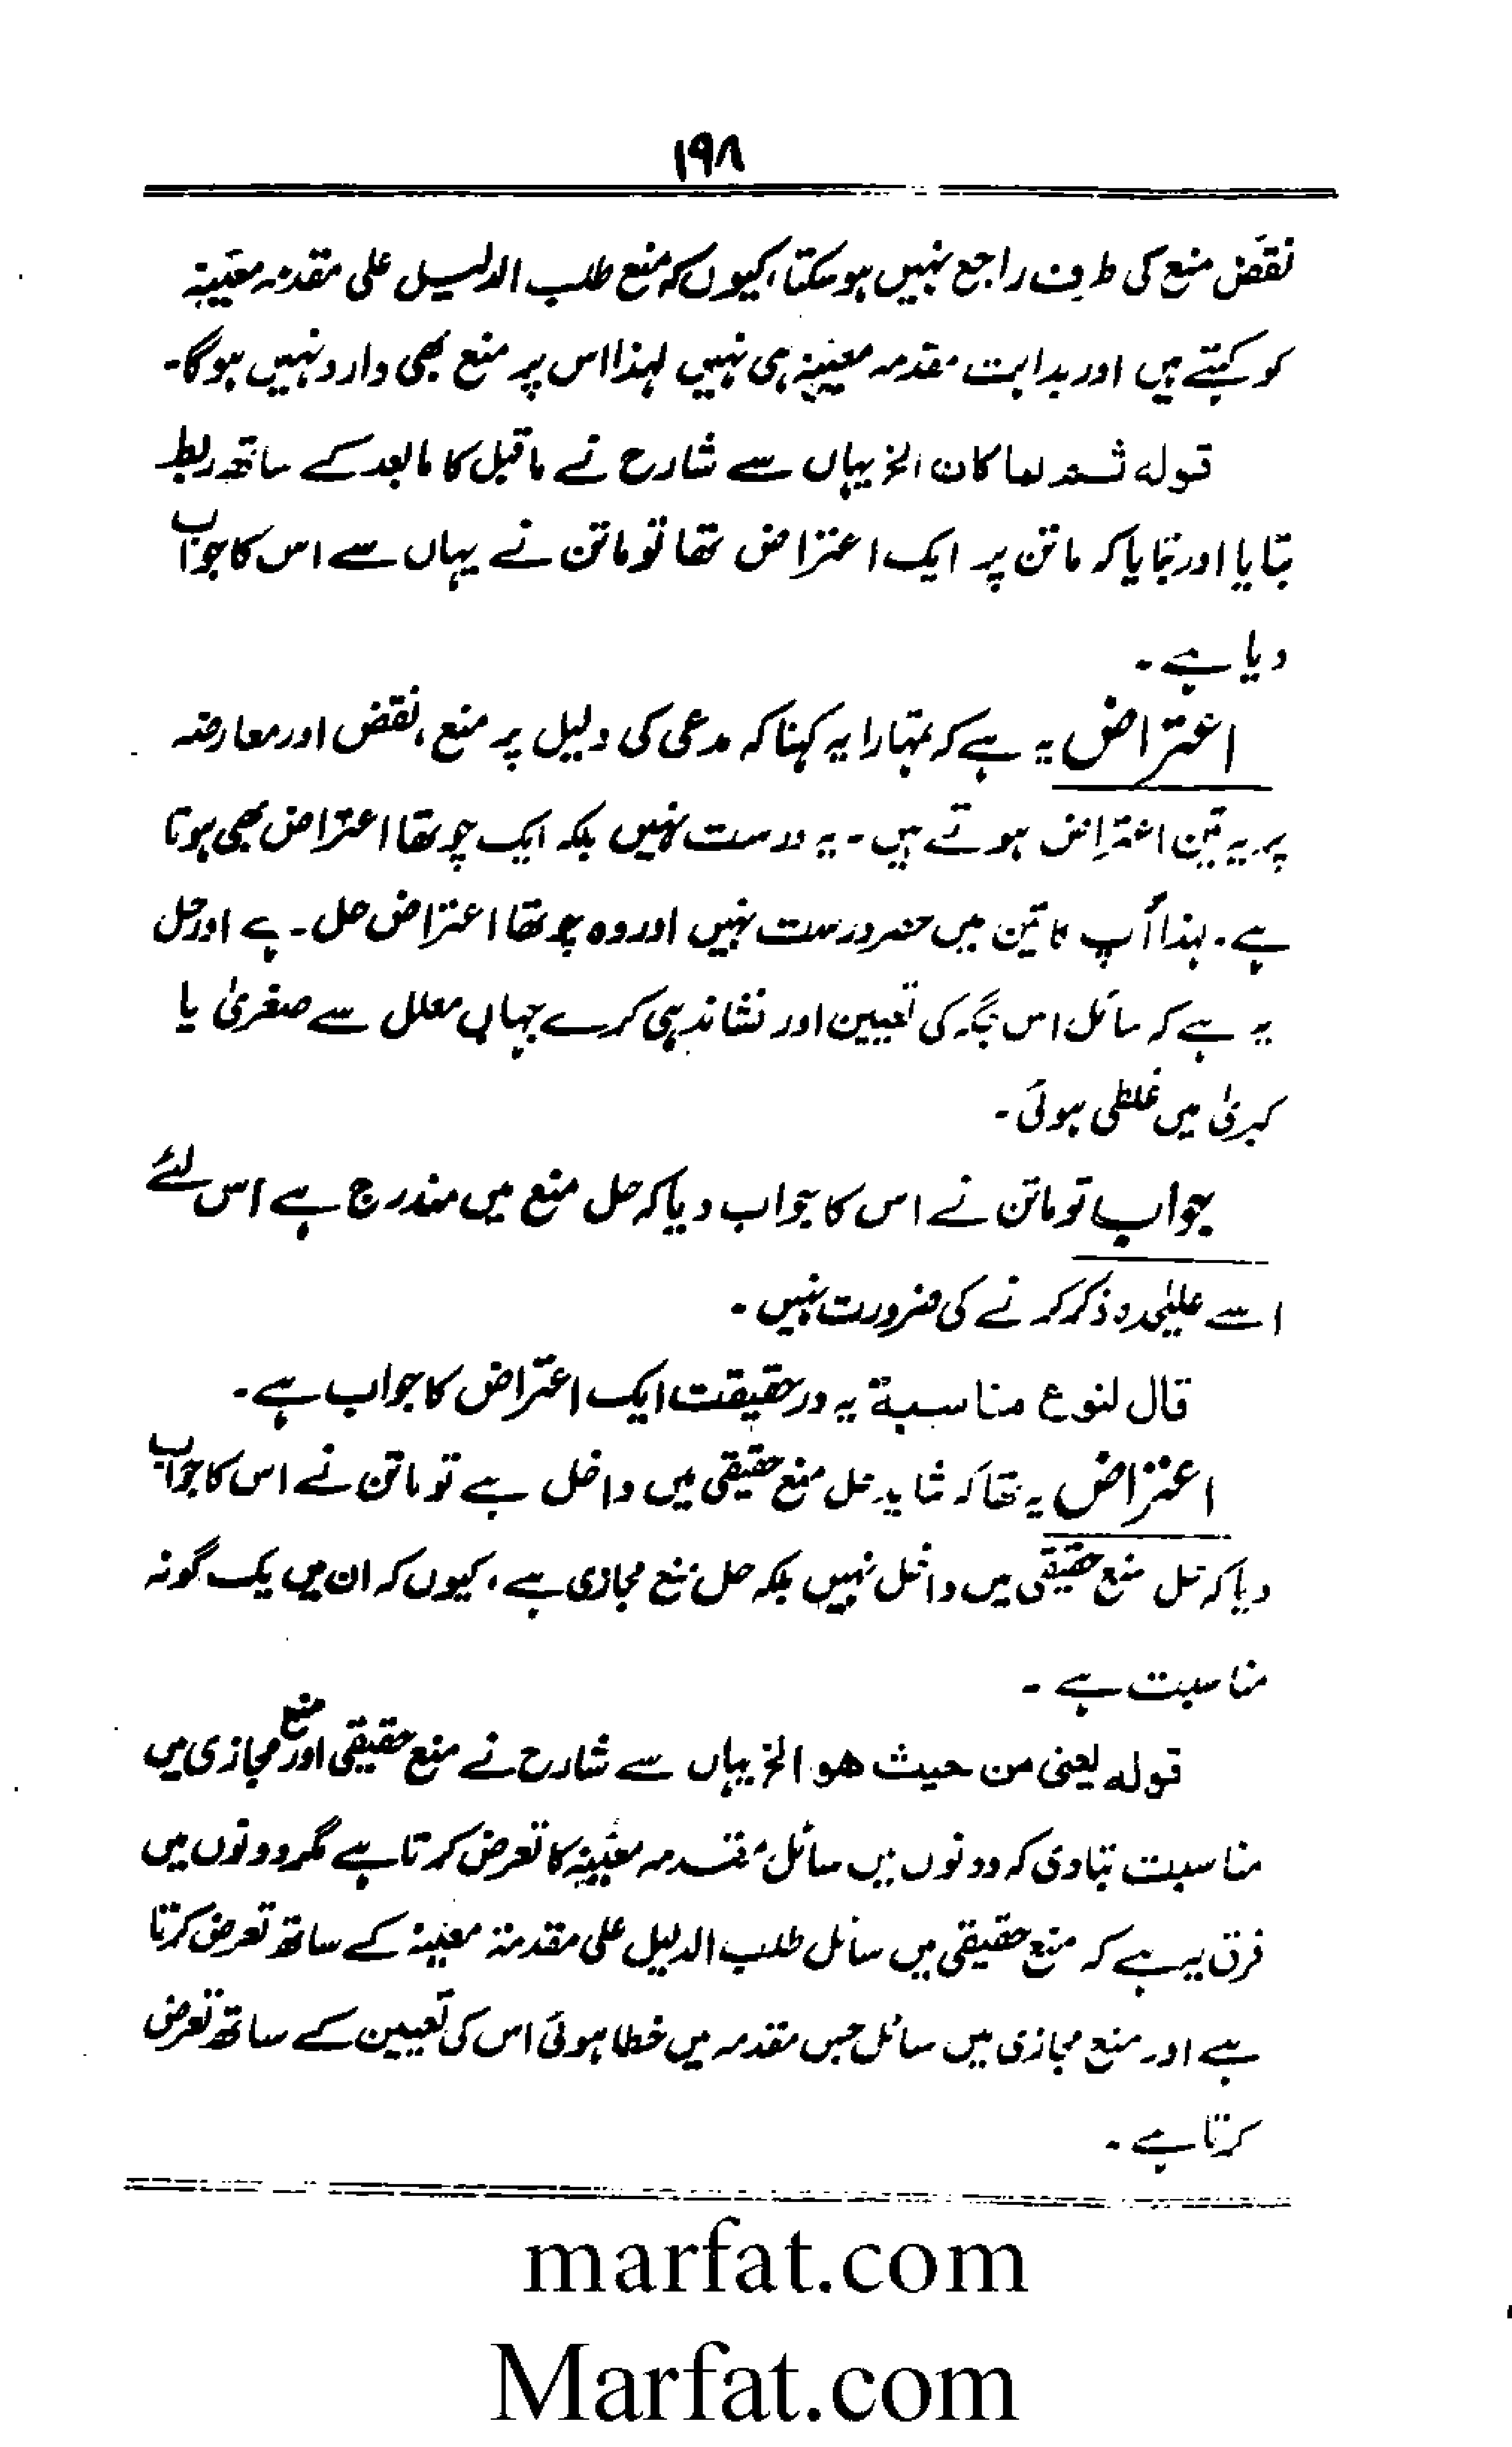 ۱۹۸
نقض منع کی طرف راجع نہیں ہو سکتا، کیوں کہ منع طلب الدلیل علی مقدمہ معیّنہ
کو کہتے ہیں اور بداہت مقدمہ معیّنہ ہی نہیں لہذا اس پر منع بھی وارد نہیں ہوگا۔
قولہ ثم لما کان الخ یہاں سے شارح نے ماقبل کا مابعد کے ساتھ ربط
بتایا اور بتایا کہ ماتن پر ایک اعتراض تھا تو ماتن نے یہاں سے اس کا جواب
دیا ہے۔
اعتراض یہ ہے کہ تمہارا یہ کہنا کہ مدعی کی دلیل پر منع، نقض اور معارضہ
پر یہ تین اعتراض ہوتے ہیں۔ یہ درست نہیں بلکہ ایک چوتھا اعتراض بھی ہوتا
ہے۔ لہذا آپ کا تین میں حصر درست نہیں اور وہ چوتھا اعتراض حل۔ ہے اور حل
یہ ہے کہ سائل اس جگہ کی تعیین اور نشاندہی کرے جہاں معلل سے صغریٰ یا
کبریٰ میں غلطی ہوئی۔
جواب تو ماتن نے اس کا جواب دیا کہ حل منع میں مندرج ہے اس لئے
اسے علیٰحدہ ذکر کرنے کی ضرورت نہیں۔
قال لنوع مناسبة یہ درحقیقت ایک اعتراض کا جواب ہے۔
اعتراض یہ تھا کہ شاید حل منع حقیقی میں داخل ہے تو ماتن نے اس کا جواب
دیا کہ حل منع حقیقی میں داخل نہیں بلکہ حل منع مجازی ہے، کیوں کہ ان میں یک گونہ
مناسبت ہے۔
قولہ یعنی من حیث ھو الخ یہاں سے شارح نے منع حقیقی اور منع مجازی میں
مناسبت بتا دی کہ دونوں میں سائل مقدمہ معیّنہ کا تعرض کرتا ہے مگر دونوں میں
فرق یہ ہے کہ منع حقیقی میں سائل طلب الدلیل علی مقدمۃ معینۃ کے ساتھ تعرض کرتا
ہے اور منع مجازی میں سائل جس مقدمہ میں خطا ہوئی اس کی تعیین کے ساتھ تعرض
کرتا ہے۔
marfat.com
Marfat.com